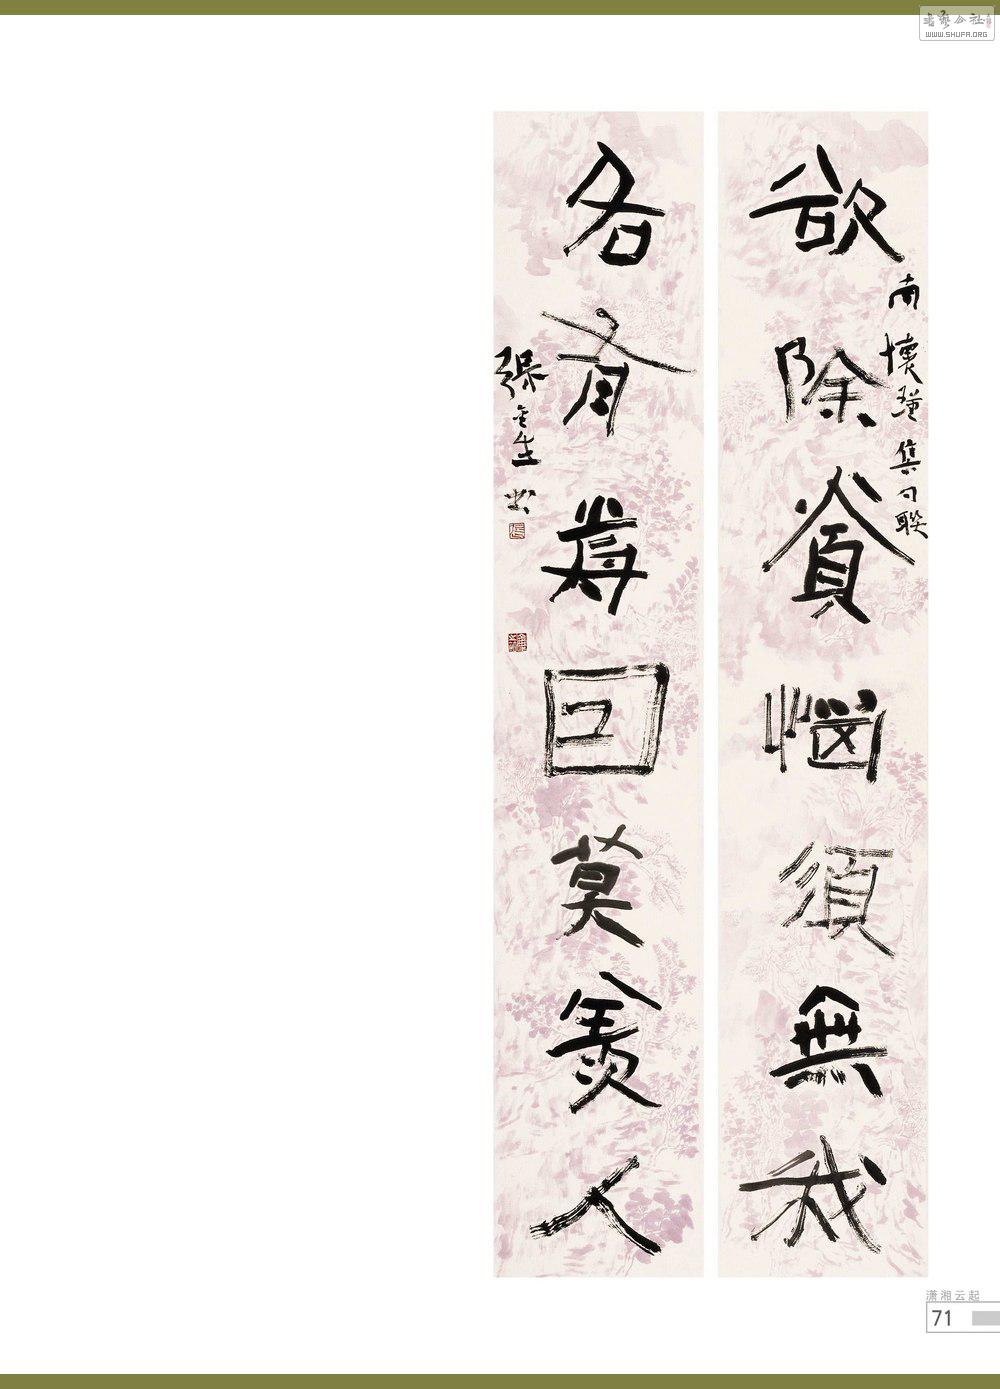 书艺公社
WWW.SHUFA.ORG
欲除煩惱須無我
南懷瑾集句聯
各有前囙莫羨人
張金生書
潇湘云起
71